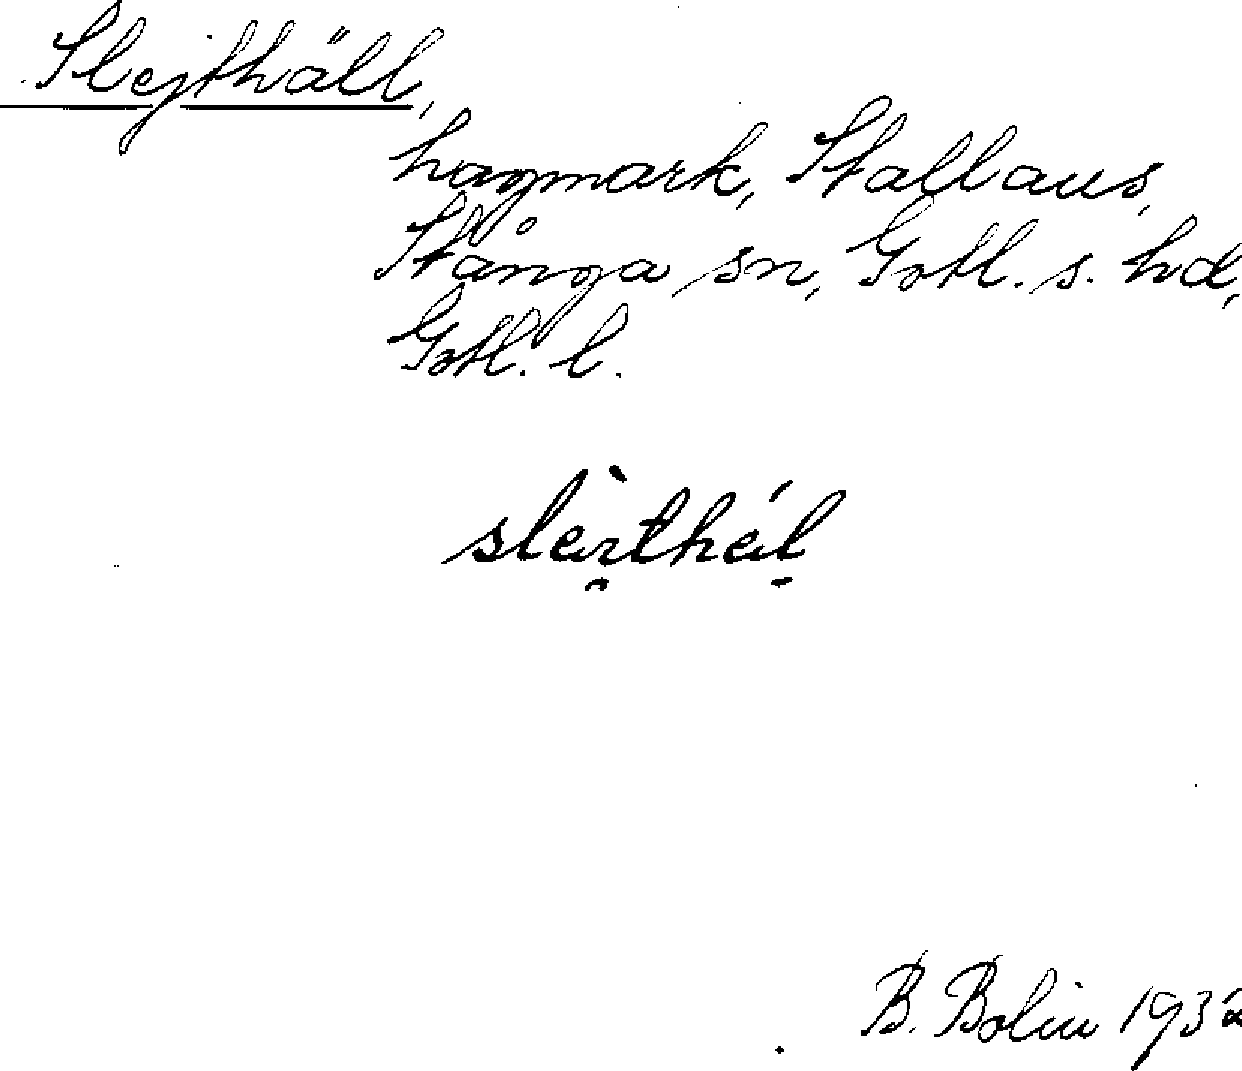 Slejthäll,
hagmark, Stallaus,
Stånga sn, Gotl. s. hd,
Gotl. l.
B. Bolin 1932